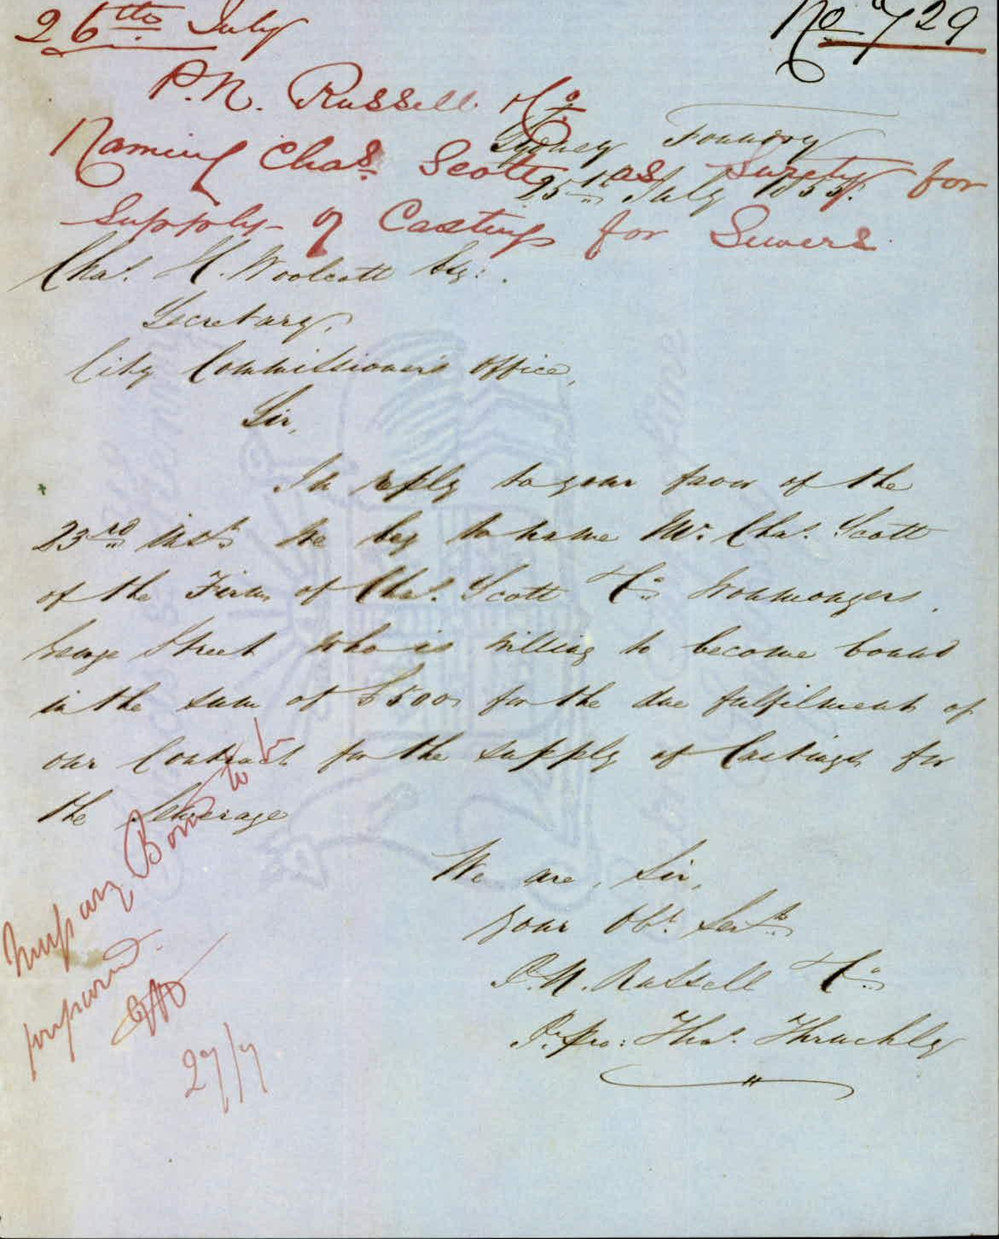 26th July
No 729
P.N. Russell & Co
Naming Chas. Scott as Surety for
Supply of Castings for Sewers
Sydney Foundry
25th July 1855.
Chas. H. Woolcott Esq:.
Secretary,
City Commissioners Office,
Sir,
In reply to your favor of the
23rd inst. We beg to name Mr. Chas. Scott
of the Firm of Chas. Scott & Co. Ironmongers,
George Street who is willing to become bound
in the sum of £500 for the due fulfilment of
our Contract for the supply of Castings for
the Sewerage
We are, Sir,
Your Obt. Servts.
P.N. Russell & Co.
Pr. Pro: Thos.
Necessary Bond to be
prepared.
27/7